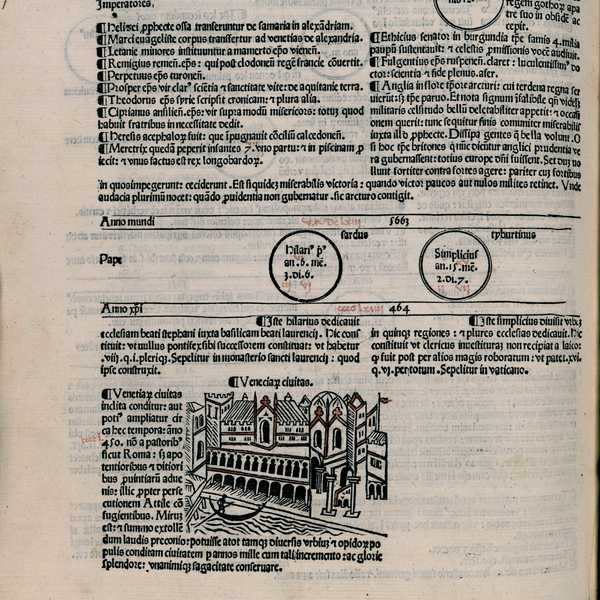 Imperatores.
¶Helisei ꝓphete ossa transferuntur de samaria in alexādriam.
¶Marci euāgeliste corpus transfertur ad venetias de alexandria.
¶Letanie minores instituuntur a mamerto epō vienen̄.
¶Remigius remen̄. epūs: qui post clodoneū regē francie cōuertit.
¶Perpetuus epūs turonen̄.
¶Prosper epūs vir clarꝰ sciētia et sanctitate vite: de aquitanie terra.
¶Theodorus epūs syrie scripsit cronicam: et plura alia.
¶Ciptianus ansilien̄. epūs: vir supra modū misericors: totū quod
habuit fratribus in necessitate dedit.
¶Heresis acephaloꝝ fuit: que īpugnauit cōciliū calcedonen̄.
¶Meretrix quedā peperit infantes .7. vno partu: et in piscinam ꝓ
iecit: et vnus factus est rex longobardoꝝ.
regem gothoꝝ apa
tre suo in obsidē ac
cepit.
¶Ethicius senator in burgundia tp̄e famis 4. milia
paupū sustentauit: et celestis ꝓmissionis vocē audiuit.
¶Fulgentius epūs ruspenen̄. claret: luculentissimꝰ do
ctor: scientia et fide plenus.
¶Anglia in flore tp̄oꝝ: arcturi: cui terdena regna ser
uierūt: is tp̄e paruo. Et nota signum
militaris celsitudo bellū delectabiliter appetit: et occasi
onem querit: tunc sequitur finis cōmuniter miserabilis
iuxta illd ꝓphete. Dissipa gentes q̄ bella volunt. O
si hoc tp̄e britones qui mō dicuntur anglici prudentia ve
ra gubernassent: totius europe dn̄i fuissent. Sed
fortiter contra fortes agere: pariter cū fortibus
in quos impegerunt: ceciderunt. Est siquidez miserabilis victoria: quando victor paucos aut nullos milites retinet. Vnde
audacia plurimū nocet: quādo ꝓuidentia non gubernatur. sic arcturo contigit.
Anno mundi 5663
sardus tyburtinus
Pape
Hilariꝰ pꝰ
an. 6. mē.
3. di. 6.
Simplicius
an. 15. mē.
2. di. 7.
Anno xp̄i 464
¶Iste hilarius dedicauit
ecclesiam beati stephani iuxta basilicam beati laurencij. Hic con
stituit: vt nullus pontifex sibi successorem constituat: vt habetur
.viij. q. i. pleriqꝫ. Sepelitur in monasterio sancti laurencij: quod
ipse construxit.
¶Iste simplicius diuisit vrbē
in quinqꝫ regiones: et plures ecclesias dedicauit. Hic
constituit vt clericus inuestiturā non recipiat a laico:
q̄ fuit post per alios magis roboratum: vt patet .xvi.
q. vij. per totum. Sepelitur in vaticano.
¶Veneciaꝝ ciuitas.
¶Venetiaꝝ ciuitas
inclita conditur: aut
potiꝰ ampliatur cir
ca hec tempora: āno
450. nō a pastoribꝰ
sicut Roma: sꝫ a po
tentioribus et ditiori
bus ꝓuintiarū adue
nis: illic ꝓpter perse
cutionem Attile cō
fugientibus. Miruꝫ
est: et summo extollē
dum laudis preconio: potuisse a tot tamqꝫ diuersis vrbiū et opidoꝝ po
pulis conditam ciuitatem ꝑ annos mille cum tali incremento: ac glorie
splendore: vnanimiqꝫ sagacitate conseruare.